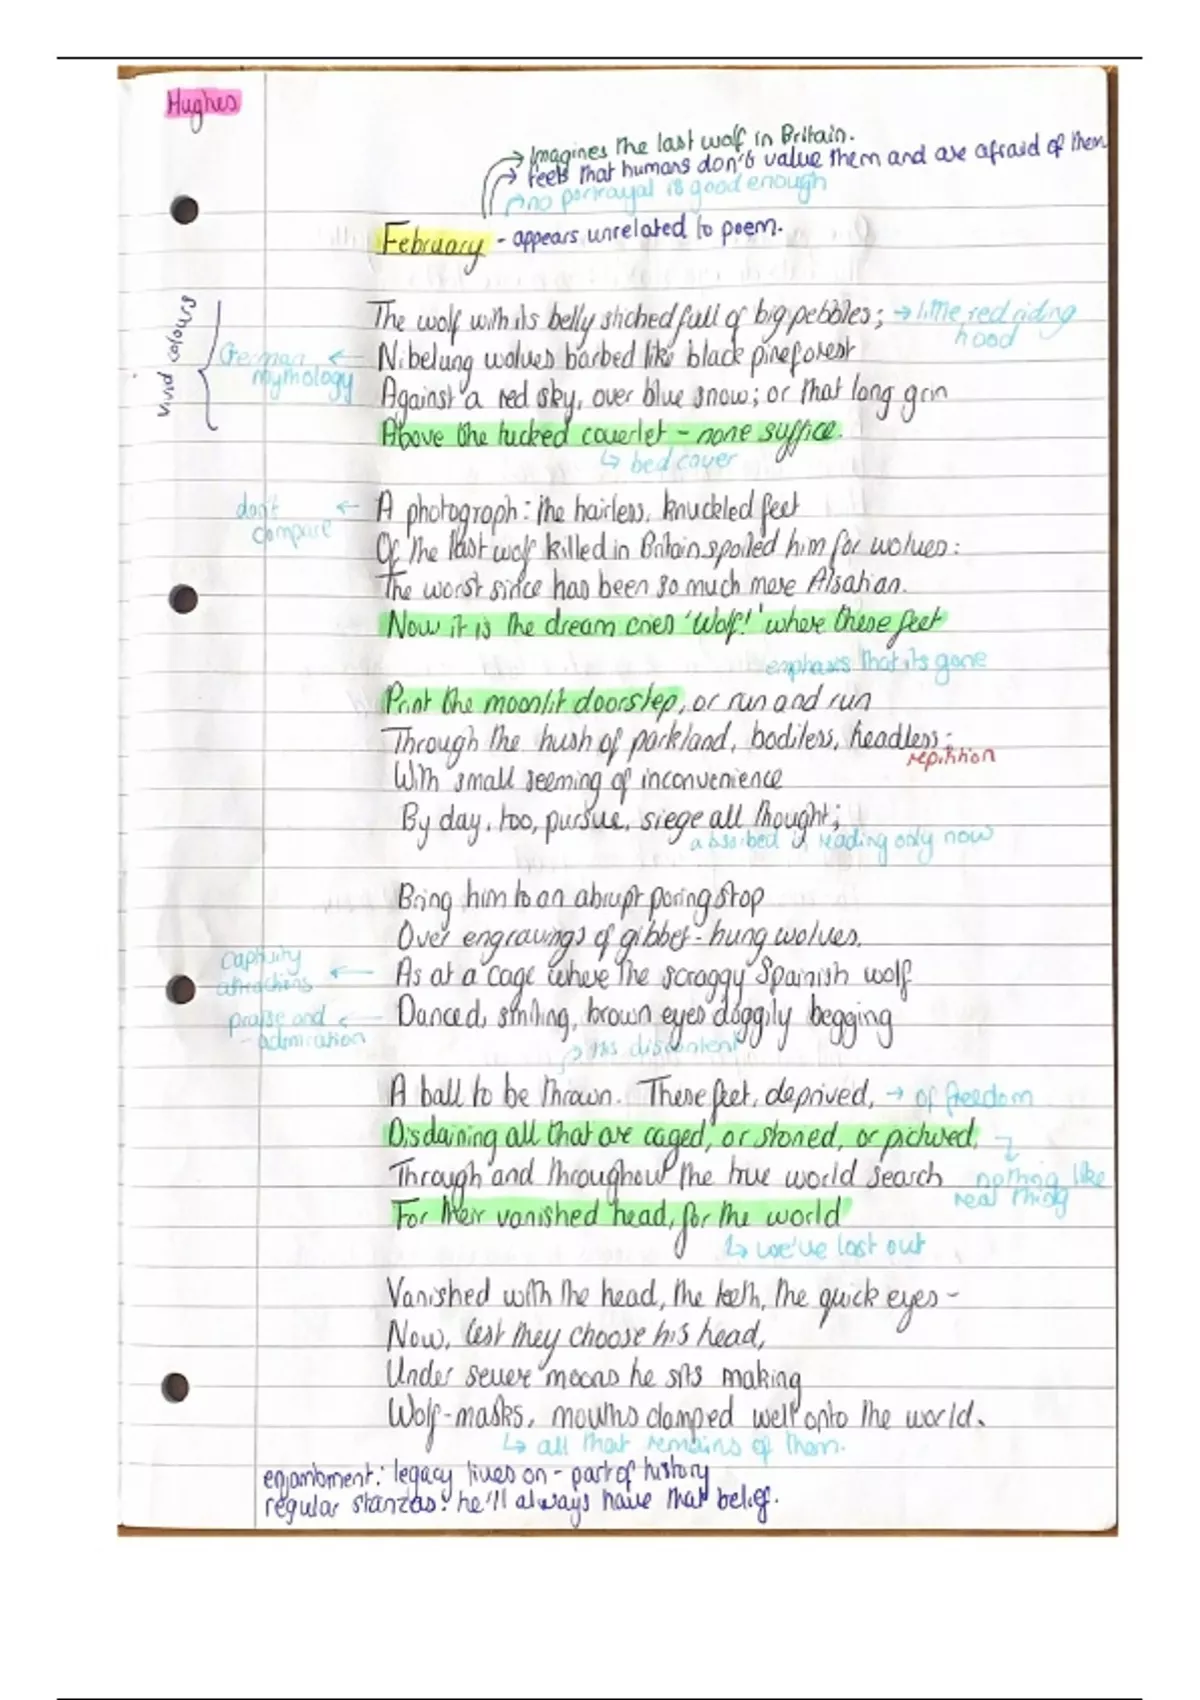 Hughes
→ Imagines the last wolf in Britain.
→ feels that humans don't value them and are afraid of them
→ no portrayal is good enough
February - appears unrelated to poem.
Vivid colours
The wolf with its belly stiched full of big pebbles; → little red riding
hood
German ← Nibelung wolves barbed like black pineforest
mythology
Against a red sky, over blue snow; or that long grin
Above the tucked coverlet - none suffice.
↳ bed cover
don't ← A photograph: the hairless, knuckled feet
compare
Of the last wolf killed in Britain spoiled him for wolves:
The worst since has been so much mere Alsatian.
Now it is the dream cries 'Wolf!' where these feet
emphasis that its gone
Print the moonlit doorstep, or run and run
Through the hush of parkland, bodiless, headless;
repitition
With small seeming of inconvenience
By day, too, pursue, siege all thought;
absorbed in reading only now
Bring him to an abrupt poring stop
Over engravings of gibbet-hung wolves,
captivity
attractions ← As at a cage where the scraggy Spanish wolf
praise and ← Danced, smiling, brown eyes doggily begging
- admiration
→ its discontent
A ball to be thrown. These feet, deprived, → of freedom
Disdaining all that are caged, or stoned, or pictured,
Through and throughout the true world search
nothing like
real thing
For their vanished head, for the world
↳ we've lost out
Vanished with the head, the teeth, the quick eyes -
Now, lest they choose his head,
Under severe moons he sits making
Wolf-masks, mouths clamped well onto the world.
↳ all that remains of them.
enjambment: legacy lives on - part of history
regular stanzas: he'll always have that belief.